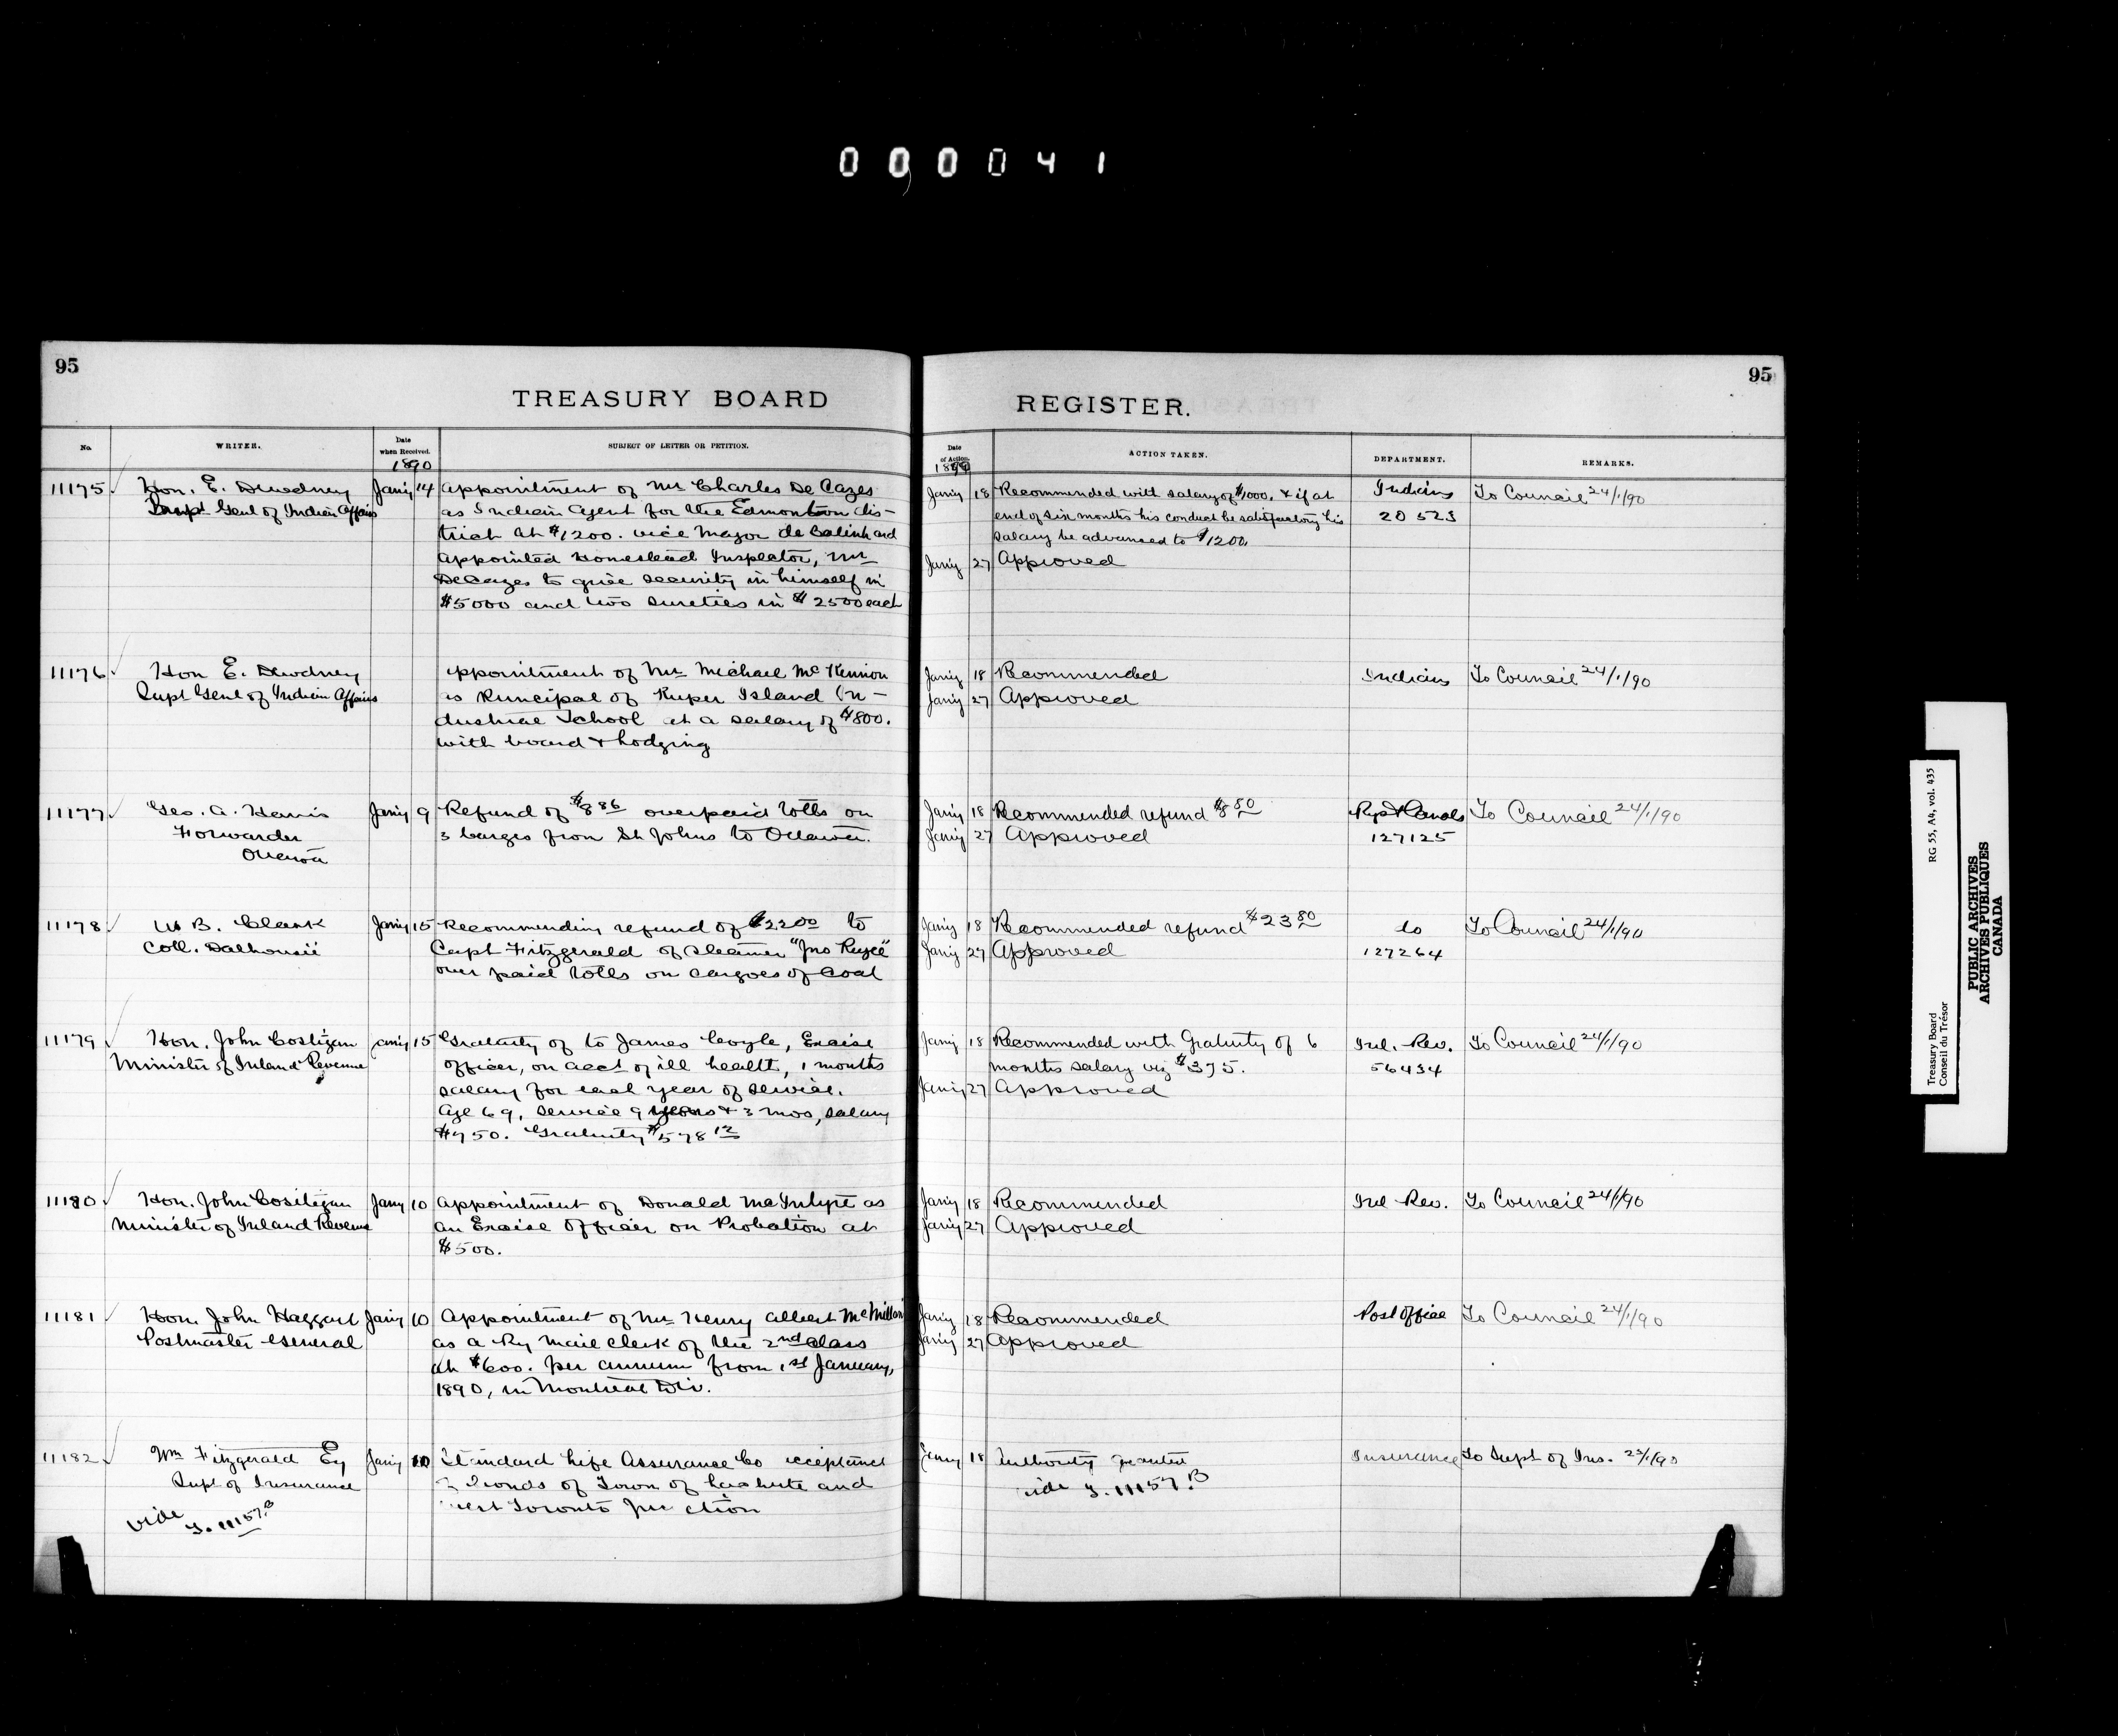 000041
95
95
TREASURY BOARD
REGISTER.
No.
WRITER.
Date
when Received.
1890
SUBJECT OF LETTER OR PETITION.
Date
of Action.
1890
ACTION TAKEN.
DEPARTMENT.
REMARKS.
11175
Hon. E. Dewdney
Supt Genl of Indian Affairs
Jany 14
Appointment of Mr Charles De Cazes
as Indian Agent for the Edmonton dis-
trict at $1200. vice Major de Balinhard
appointed Homestead Inspector, Mr
DeCazes to give security in himself in
$5000 and two sureties in $2500 each
Jany 18
Recommended with salary of $1000. & if at
end of six months his conduct be satisfactory his
salary be advanced to $1200.
Jany 27 Approved
Indians
20523
To Council 24/1/90
11176
Hon E. Dewdney
Supt Genl of Indian Affairs
ppointment of Mr Michael McKinnon
as Principal of Kuper Island In-
dustrial School at a salary of $800.
with board & lodging
Jany 18 Recommended
Jany 27 Approved
Indians
To Council 24/1/90
11177
Geo. A. Harris
Forwarder
Ottawa
Jany 9
Refund of $8 86 overpaid tolls on
3 barges from St Johns to Ottawa.
Jany 18 Recommended refund $8 80
Jany 27 Approved
Rys & Canals
127125
To Council 24/1/90
11178
W B. Clark
Coll. Dalhousie
Jany 15
Recommending refund of $22 00 to
Capt Fitzgerald of Steamer "Jno
over paid tolls on cargoes of coal
Jany 18 Recommended refund $23 80
Jany 27 Approved
do
127264
To Council 24/1/90
11179
Hon. John Costigan
Minister of Inland Revenue
Jany 15
Gratuity of to James Coyle, Excise
officer, on acct of ill health, 1 months
salary for each year of service.
Age 69, service 9 years & 3 mos, salary
$750. Gratuity $578 12
Jany 18
Recommended with Gratuity of 6
months salary viz $375.
Jany 27 Approved
Inl. Rev.
56434
To Council 24/1/90
11180
Hon. John Costigan
Minister of Inland Revenue
Jany 10
Appointment of Donald McIntyre as
an Excise Officer on Probation at
$500.
Jany 18 Recommended
Jany 27 Approved
Inl Rev.
To Council 24/1/90
11181
Hon. John Haggart
Postmaster General
Jany 10
Appointment of Mr Henry Albert McMillan
as a Ry Mail Clerk of the 2nd Class
at $600. per annum from 1st January,
1890, in Montreal Div.
Jany 18 Recommended
Jany 27 Approved
Post Office
To Council 24/1/90
11182
Wm Fitzgerald Esq
Supt of Insurance
vide J. 11157 B
Jany 10
Standard Life Assurance Co acceptance
Bonds of Town of Lachute and
West Toronto Junction
Jany 18
Authority granted
vide J. 11157. B
Insurance
To Supt of Ins. 23/1/90
Treasury Board RG 55, A4, vol. 435
Conseil du Trésor
PUBLIC ARCHIVES
ARCHIVES PUBLIQUES
CANADA